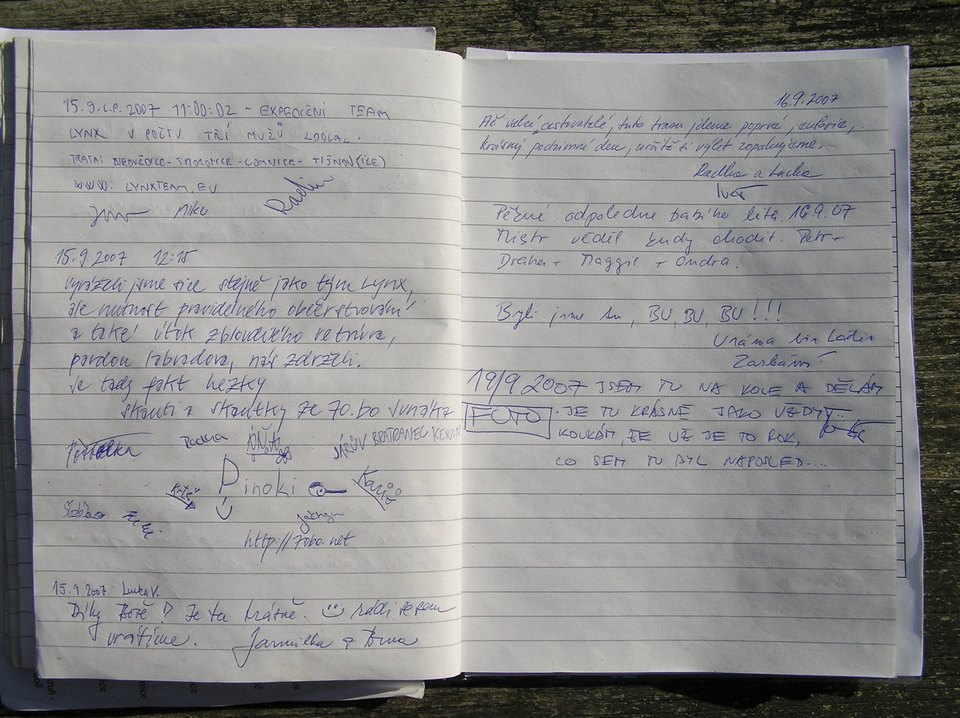 15.9.L.P. 2007 11:00:02 - EXPEDIČNÍ TEAM
LYNX V POČTU TŘÍ MUŽŮ
TRASA: NEDVĚDICE - - LOMNICE - TIŠNOV(ICE)
WWW. LYNXTEAM.EU
Miky Radim
15.9.2007 12:15
vyráželi jsme sice stejně jako tým Lynx,
ale nutnost pravidelného občerstvování
a také útok zbloudilého retrívra,
pardon labradora, nás zdrželi.
Je tady fakt hezky
skauti a skautky ze 70.bo Junáka
Pinoki
http://70bo.net
15.9.2007
Díky Bože!! Je tu krásně. rádi se sem
vrátíme. Jarmilka a
16.9.2007
Ač velcí cestovatelé, tuto trasu jdeme poprvé,
krásný podzimní den, určitě si výlet zopakujeme.
Radka a Lucka
Pěkné odpoledne babího léta. 16.9.07
Mistr věděl kudy chodit. Petr +
Draha + Maggil + Ondra.
Byli jsme tu, BU, BU, BU!!!
Usáma bin Ladin
19/9 2007 JSEM TU NA KOLE A DĚLÁM
FOTO. JE TU KRÁSNĚ JAKO VŽDY...
KOUKÁM, ŽE UŽ JE TO ROK,
CO SEM TU BYL NAPOSLED...